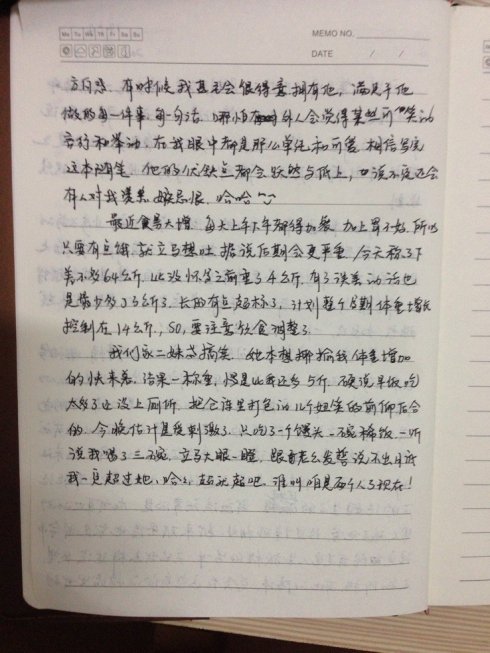 Mo Tu We Th Fr Sa Su
MEMO NO.
DATE / /
有时候我甚至会很得意拥有他,满足于他
做的每一件事,每一句话,哪怕有外人会觉得某些可笑的
言行和举动,在我眼中都是那么单纯和可爱,相信写完
这本随笔,他的优缺点都会跃然与纸上,也说不定还会
有人对我羡慕嫉妒恨,哈哈~~
最近食量大增,每天上午下午都得加餐,加上胃不好,所以
只要有点饿就立马想吐,据说后期会更严重,今天称了下
差不多64公斤,比没怀孕之前重了4公斤,有了误差的话也
是差不多了3公斤了,长的有点超标了,计划整个孕期体重增长
控制在14公斤,SO,要注意饮食调整了.
我们家二妹落搞笑,她本想挪揄我体重增加
的快来着,结果一称重,愣是比我还多5斤,硬说早饭吃
太多了还没上厕所,把仓库里打包的几个姐笑的前仰后合
的,今晚估计是受刺激了,只吃了一个馒头一碗稀饭,一听
说我喝了三碗,立马大眼一瞪,跟曹老公发誓说不出月底
我一定超过她,哈哈,超就超吧,谁叫咱是两个人了现在!